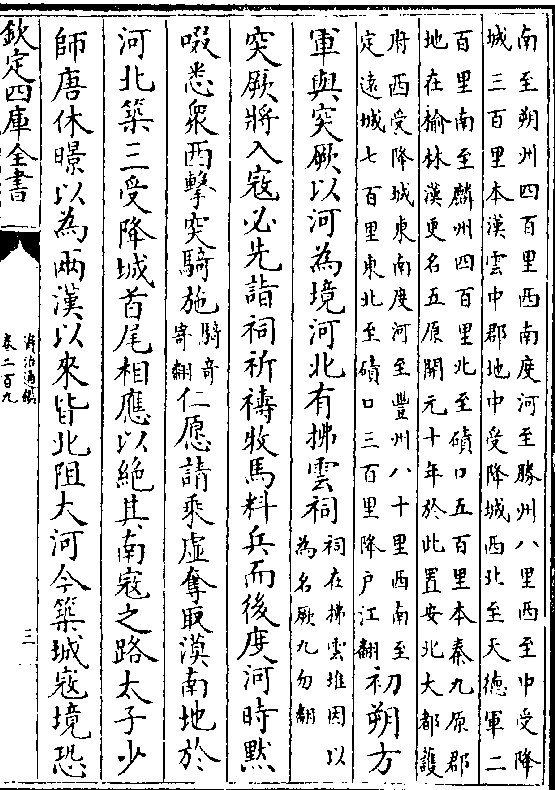 南至朔州四百里西南度河至勝州八里西至中受降
城三百里本漢雲中郡地中受降城西北至天德軍二
百里南至麟州四百里北至磧口五百里本秦九原郡
地在榆林漢更名五原開元十年於此置安北大都護
府西受降城東南度河至豐州八十里西南至
定遠城七百里東北至磧口三百里降户江翻
初朔方
軍與突厥以河為境河北有拂雲祠
祠在拂雲堆因以
為名厥九勿翻
突厥將入寇必先詣祠祈禱牧馬料兵而後度河時默
啜悉衆西擊突騎施
騎奇
寄翻
仁愿請乘虛奪取漠南地於
河北築三受降城首尾相應以絶其南寇之路太子少
師唐休暻以為兩漢以來皆北阻大河今築城寇境恐
欽定四庫全書
資治通鑑
卷二百九
三